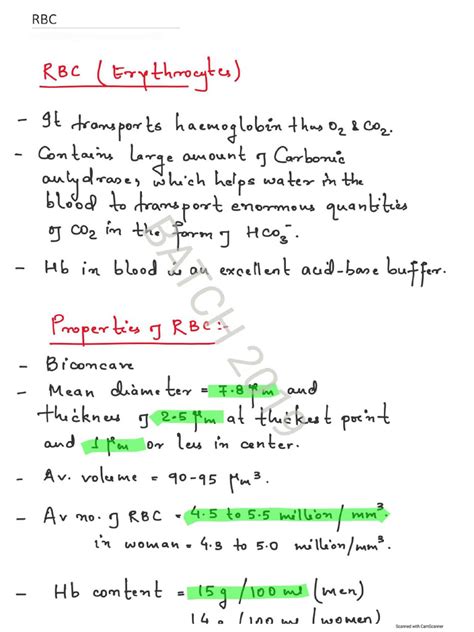 RBC
RBC (Erythrocytes)
- It transports haemoglobin thus O2 & CO2.
- Contains large amount of Carbonic
anhydrase, which helps water in the
blood to transport enormous quantities
of CO2 in the form of HCO3⁻
- Hb in blood is an excellent acid-base buffer.
Properties of RBC:-
- Biconcave
- Mean diameter = 7.8 μm and
thickness of 2.5 μm at thickest point
and 1 μm or less in center.
- Av. volume = 90-95 μm³.
- Av no. of RBC = 4.5 to 5.5 million/mm³
in woman = 4.3 to 5.0 million/mm³.
- Hb content = 15g/100 ml (men)
14g/100 ml (women)
BATCH 2019
Scanned with CamScanner